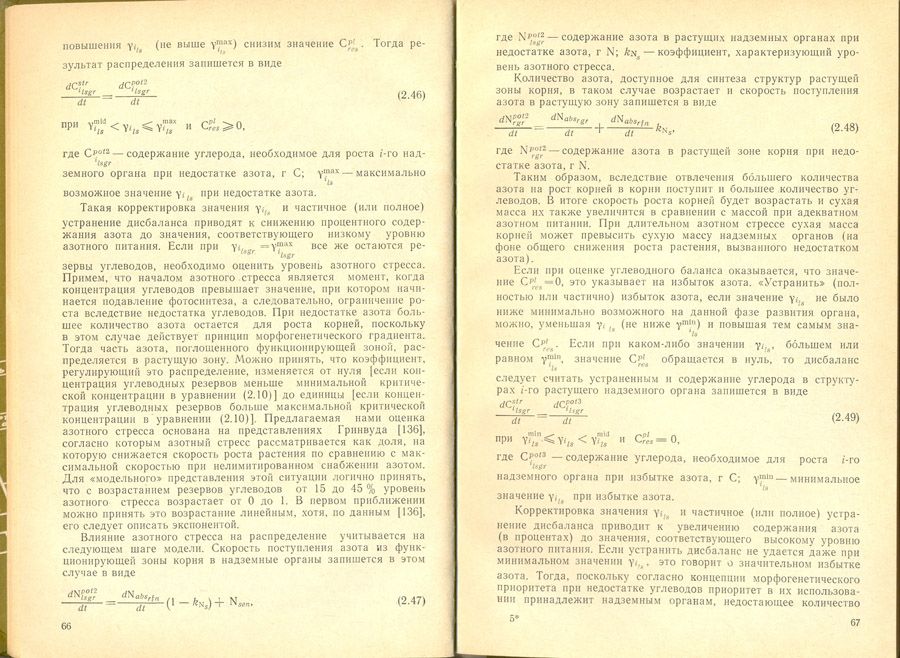 повышения γ_{i_{ls}} (не выше γ^{max}_{i_{ls}}) снизим значение C^{pl}_{res}. Тогда ре-
зультат распределения запишется в виде
dC^{str}_{i_{lsgr}}/dt = dC^{pot2}_{i_{lsgr}}/dt (2.46)
при γ^{mid}_{i_{ls}} < γ_{i_{ls}} ⩽ γ^{max}_{i_{ls}} и C^{pl}_{res} ⩾ 0,
где C^{pot2}_{i_{lsgr}} — содержание углерода, необходимое для роста i-го над-
земного органа при недостатке азота, г С; γ^{max}_{i_{ls}} — максимально
возможное значение γ_{i_{ls}} при недостатке азота.
Такая корректировка значения γ_{i_{ls}} и частичное (или полное)
устранение дисбаланса приводят к снижению процентного содер-
жания азота до значения, соответствующего низкому уровню
азотного питания. Если при γ_{i_{lsgr}} = γ^{max}_{i_{lsgr}} все же остаются ре-
зервы углеводов, необходимо оценить уровень азотного стресса.
Примем, что началом азотного стресса является момент, когда
концентрация углеводов превышает значение, при котором начи-
нается подавление фотосинтеза, а следовательно, ограничение ро-
ста вследствие недостатка углеводов. При недостатке азота боль-
шее количество азота остается для роста корней, поскольку
в этом случае действует принцип морфогенетического градиента.
Тогда часть азота, поглощенного функционирующей зоной, рас-
пределяется в растущую зону. Можно принять, что коэффициент,
регулирующий это распределение, изменяется от нуля [если кон-
центрация углеводных резервов меньше минимальной критиче-
ской концентрации в уравнении (2.10)] до единицы [если концен-
трация углеводных резервов больше максимальной критической
концентрации в уравнении (2.10)]. Предлагаемая нами оценка
азотного стресса основана на представлениях Гринвуда [136],
согласно которым азотный стресс рассматривается как доля, на
которую снижается скорость роста растения по сравнению с мак-
симальной скоростью при нелимитированном снабжении азотом.
Для «модельного» представления этой ситуации логично принять,
что с возрастанием резервов углеводов от 15 до 45 % уровень
азотного стресса возрастает от 0 до 1. В первом приближении
можно принять это возрастание линейным, хотя, по данным [136],
его следует описать экспонентой.
Влияние азотного стресса на распределение учитывается на
следующем шаге модели. Скорость поступления азота из функ-
ционирующей зоны корня в надземные органы запишется в этом
случае в виде
dN^{pot2}_{lsgr}/dt = dN_{abs_{rfn}}/dt (1 − k_{N_s}) + N_{sen}, (2.47)
66
где N^{pot2}_{lsgr} — содержание азота в растущих надземных органах при
недостатке азота, г N; k_{N_s} — коэффициент, характеризующий уро-
вень азотного стресса.
Количество азота, доступное для синтеза структур растущей
зоны корня, в таком случае возрастает и скорость поступления
азота в растущую зону запишется в виде
dN^{pot2}_{rgr}/dt = dN_{abs_{rgr}}/dt + dN_{abs_{rfn}}/dt k_{N_s}, (2.48)
где N^{pot2}_{rgr} — содержание азота в растущей зоне корня при недо-
статке азота, г N.
Таким образом, вследствие отвлечения бо́льшего количества
азота на рост корней в корни поступит и большее количество уг-
леводов. В итоге скорость роста корней будет возрастать и сухая
масса их также увеличится в сравнении с массой при адекватном
азотном питании. При длительном азотном стрессе сухая масса
корней может превысить сухую массу надземных органов (на
фоне общего снижения роста растения, вызванного недостатком
азота).
Если при оценке углеводного баланса оказывается, что значе-
ние C^{pl}_{res} = 0, это указывает на избыток азота. «Устранить» (пол-
ностью или частично) избыток азота, если значение γ_{i_{ls}} не было
ниже минимально возможного на данной фазе развития органа,
можно, уменьшая γ_{i_{ls}} (не ниже γ^{min}_{i_{ls}}) и повышая тем самым зна-
чение C^{pl}_{res}. Если при каком-либо значении γ_{i_{ls}}, бо́льшем или
равном γ^{min}_{i_{ls}}, значение C^{pl}_{res} обращается в нуль, то дисбаланс
следует считать устраненным и содержание углерода в структу-
рах i-го растущего надземного органа запишется в виде
dC^{str}_{i_{lsgr}}/dt = dC^{pot3}_{i_{lsgr}}/dt (2.49)
при γ^{min}_{i_{ls}} ⩽ γ_{i_{ls}} < γ^{mid}_{i_{ls}} и C^{pl}_{res} = 0,
где C^{pot3}_{i_{lsgr}} — содержание углерода, необходимое для роста i-го
надземного органа при избытке азота, г С; γ^{min}_{i_{ls}} — минимальное
значение γ_{i_{ls}} при избытке азота.
Корректировка значения γ_{i_{ls}} и частичное (или полное) устра-
нение дисбаланса приводит к увеличению содержания азота
(в процентах) до значения, соответствующего высокому уровню
азотного питания. Если устранить дисбаланс не удается даже при
минимальном значении γ_{i_{ls}}, это говорит о значительном избытке
азота. Тогда, поскольку согласно концепции морфогенетического
приоритета при недостатке углеводов приоритет в их использова-
нии принадлежит надземным органам, недостающее количество
5*
67